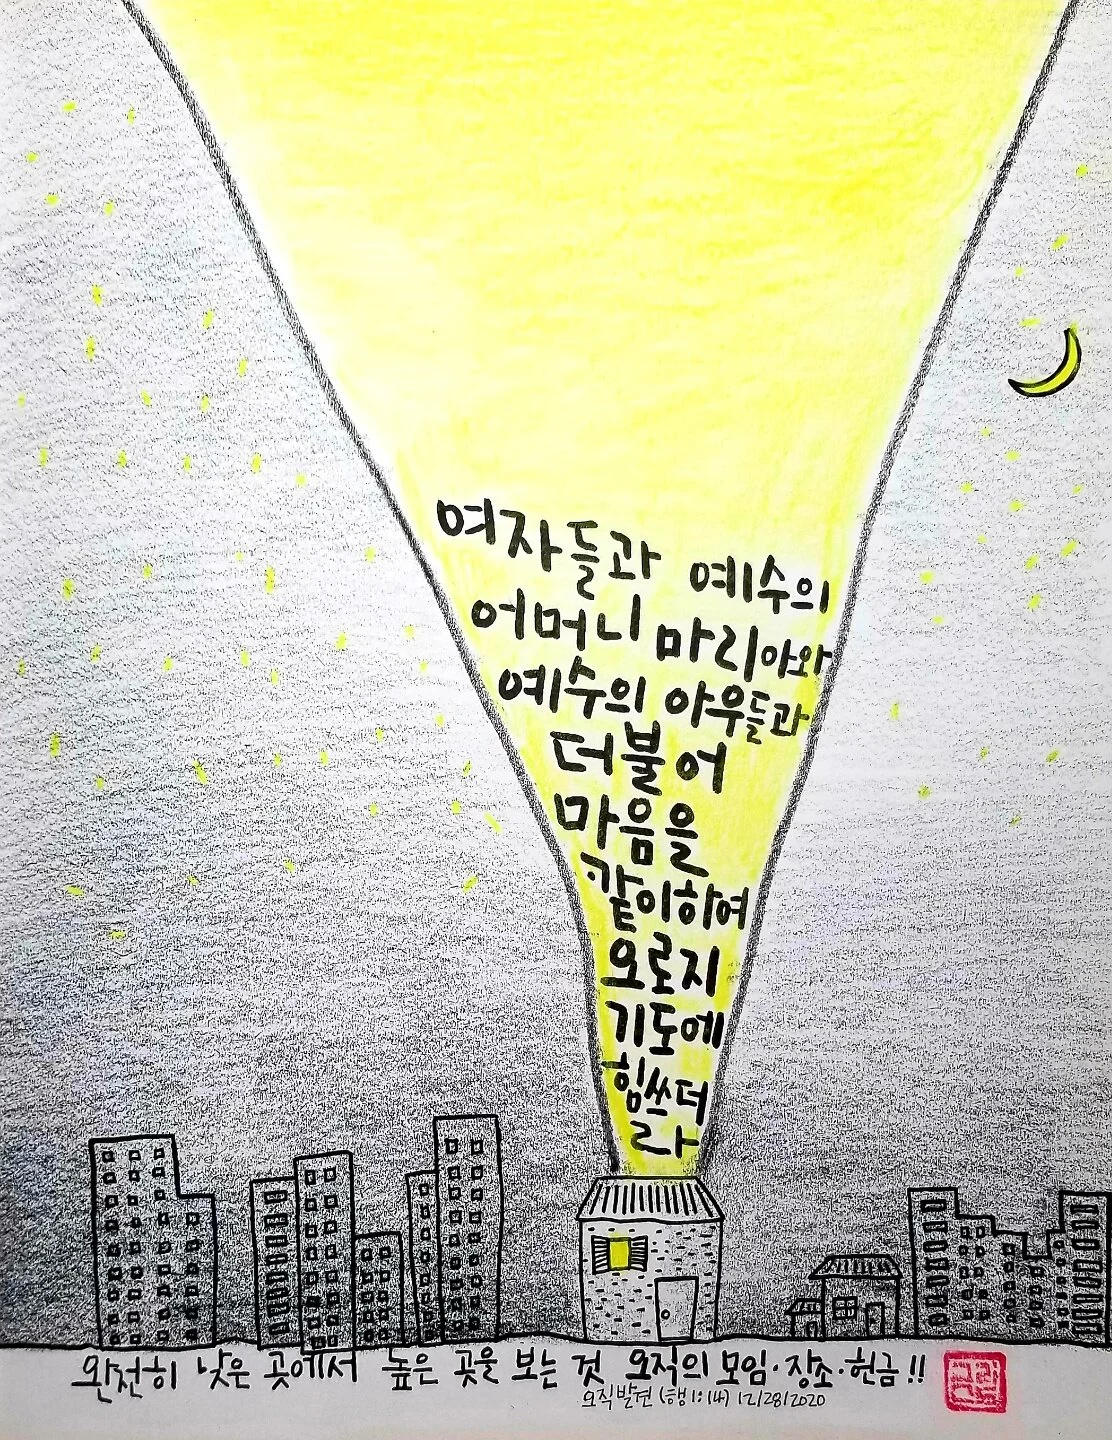 여자들과 예수의
어머니 마리아와
예수의 아우들과
더불어
마음을
같이하여
오로지
기도에
힘쓰더
라
완전히 낮은 곳에서 높은 곳을 보는 것 오직의 모임·장소·헌금!!
오직발견 (행1:14) 12/28/2020